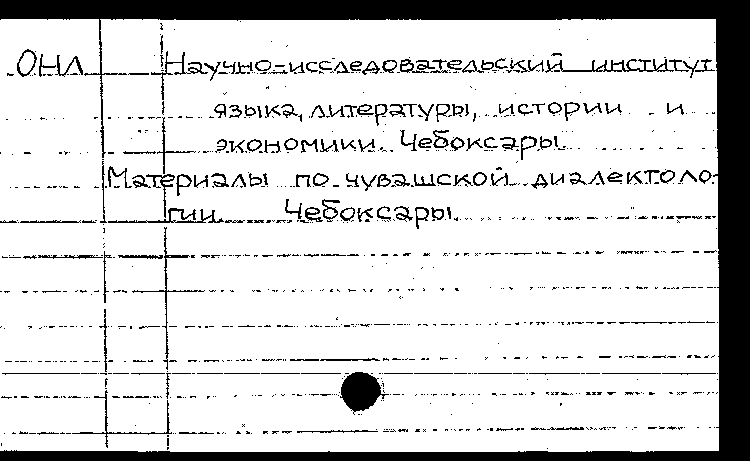 ОНЛ Научно-исследовательский институт
языка, литературы, истории и
экономики. Чебоксары.
Материалы по чувашской диалектоло-
гии. Чебоксары.